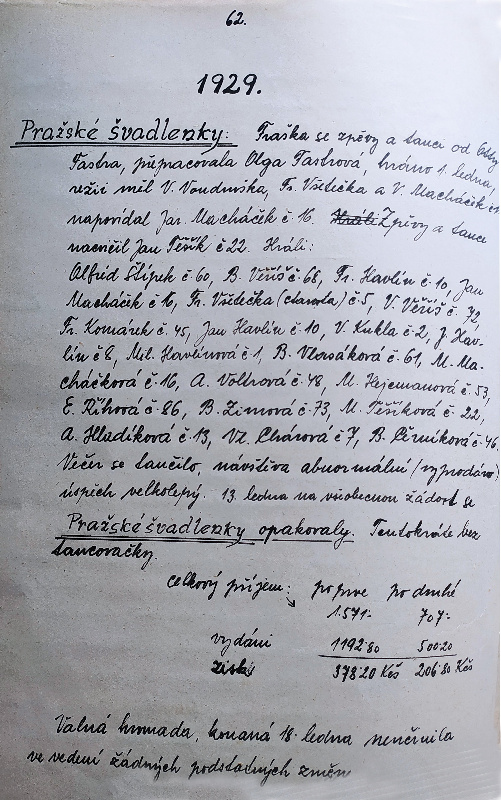 62.
1929.
Pražské švadlenky: Fraška se zpěvy a tanci od
Fastra, přepracovala Olga Fastrová, hráno 1. ledna,
režii měl V. Vondruška, Fr. Všetička a V. Macháček
napovídal Jar. Macháček č. 16. Hráli Zpěvy a tance
nacvičil Jan Těšík č 22. Hráli:
Alfréd Štípek č 60, B. Věříš č 68, Fr. Havlín č. 10, Jan
Macháček č 16, Fr. Všetička (starosta) č. 5, V. Věříš č. 72
Fr. Komárek č. 45, Jan Havlín č. 10, V. Kukla č. 2, J. Hav-
lín č 8, Mil. Havlínová č. 1, B. Vlasáková č. 61, M. Ma-
cháčková č. 16, A. Voltrová č. 48, M. Hejcmanová č. 53,
E. Říhová č. 86, B. Zimová č. 73, M. Těšíková č. 22,
A. Hladíková č. 13, Vl. Chárová č 7, B. Černíková č. 46.
Večer se tančilo, návštěva abnormální (vyprodáno)
úspěch velkolepý. 13. ledna na všeobecnou žádost se
Pražské švadlenky opakovaly. Tentokráte bez
tancovačky.
Celkový příjem: poprve po druhé
1.571- 707-
vydání 1192.80 500.20
zisk 378.20 Kčs 206.80 Kčs
Valná hromada, konaná 18. ledna neučinila
ve vedení žádných podstatných změn